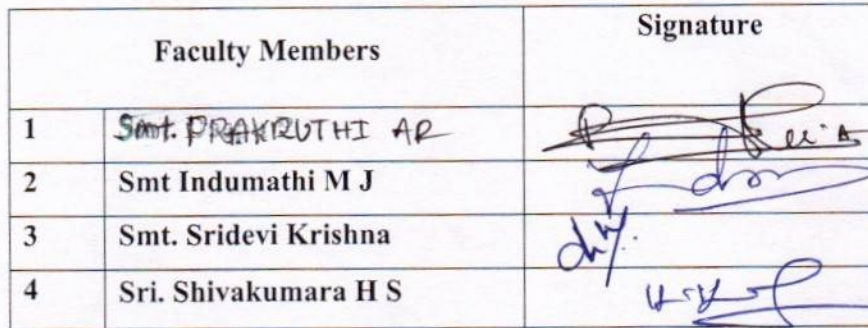 Faculty Members Signature
1 Smt. PRAKRUTHI AR
2 Smt Indumathi M J
3 Smt. Sridevi Krishna
4 Sri. Shivakumara H S